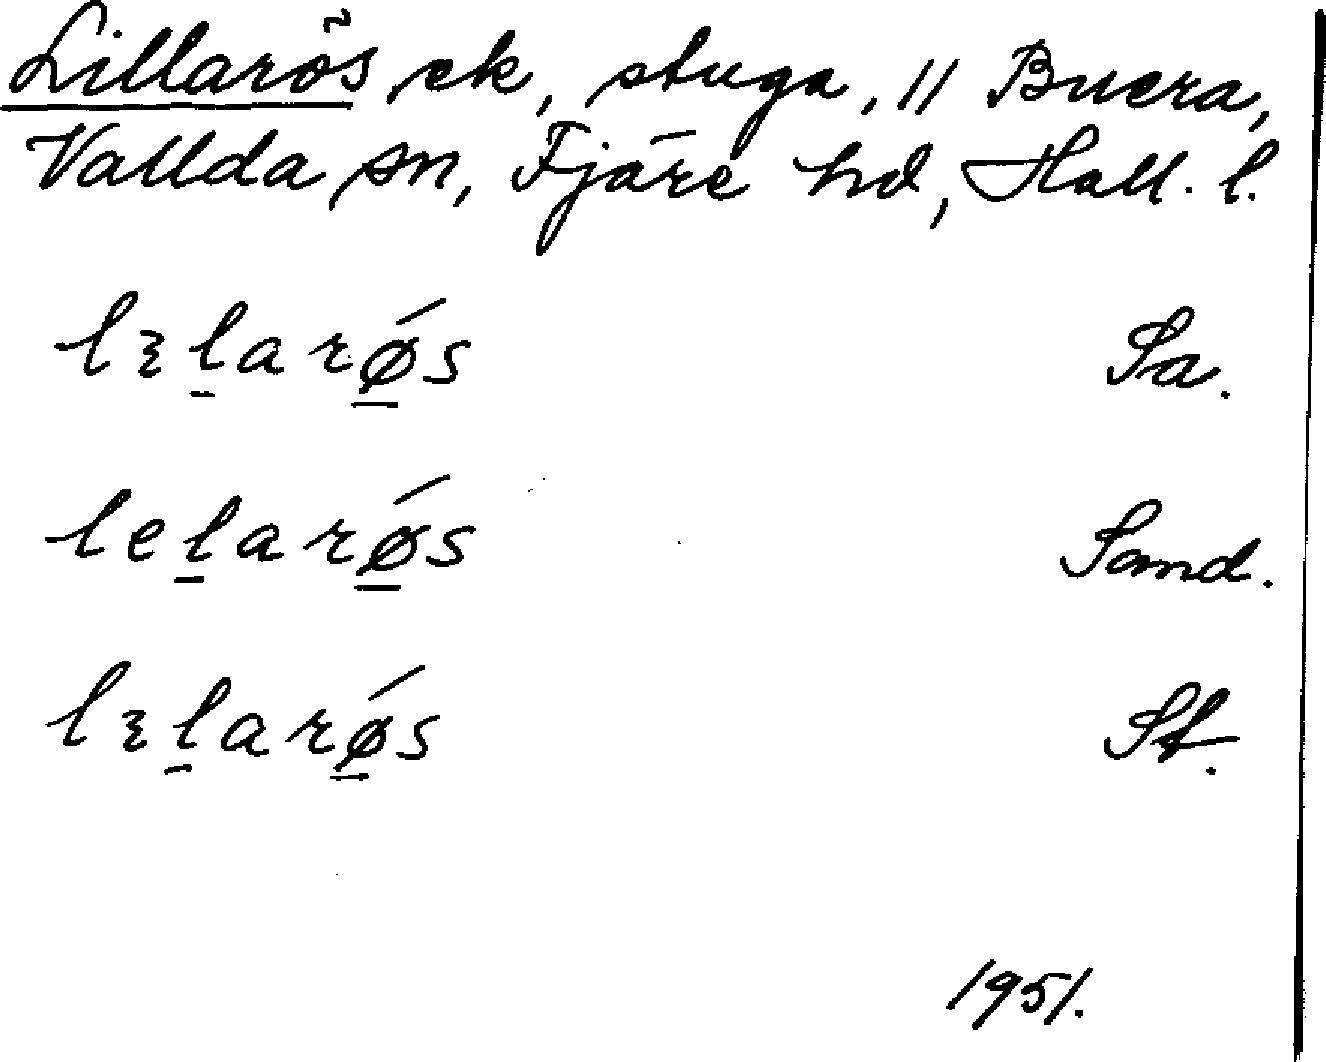 Lillarös ek, stuga, 11 Buera,
Vallda sn, Fjäre hd, Hall. l.
lɛl̲arǿ̲s Sa.
lel̲arǿ̲s Sand.
lɛl̲arǿ̲s St.
1951.